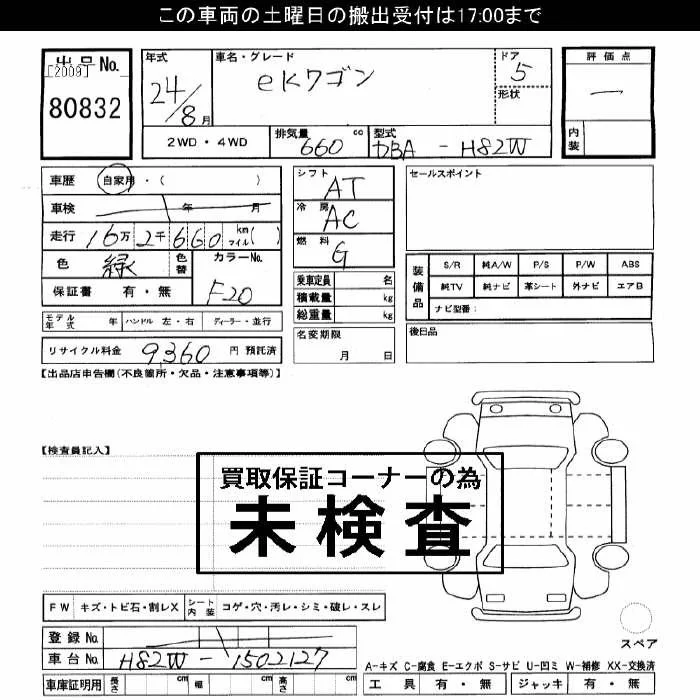 この車両の土曜日の搬出受付は17:00まで
出品No.
[2009]
80832
年式
24/8月
車名・グレード
eKワゴン
ドア
5
形状
評価点
―
内装
2WD・4WD
排気量
660 cc
型式
DBA - H82W
車歴 自家用・( )
車検 年 月
走行 16万2千660 km マイル( )
色 緑
色替
カラーNo.
F20
保証書 有・無
シフト
AT
冷房
AC
燃料
G
乗車定員 名
積載量 kg
総重量 kg
名変期限
月 日
セールスポイント
装備品
S/R 純A/W P/S P/W ABS
純TV 純ナビ 革シート 外ナビ エアB
ナビ型番:
後日品
モデル年式 年 ハンドル 左・右 ディーラー・並行
リサイクル料金 9,360 円 預託済
【出品店申告欄(不良箇所・欠品・注意事項等)】
【検査員記入】
買取保証コーナーの為
未検査
FW キズ・トビ石・割レX シート内装 コゲ・穴・汚レ・シミ・破レ・スレ
登録No.
車台No. H82W - 1502127
車庫証明用 長さ cm 幅 cm 高さ cm
スペア
A-キズ C-腐食 E-エクボ S-サビ U-凹ミ W-補修 XX-交換済
工具 有・無 ジャッキ 有・無